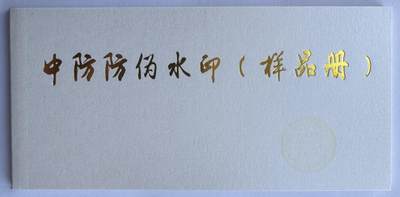 中防防伪水印（样品册）